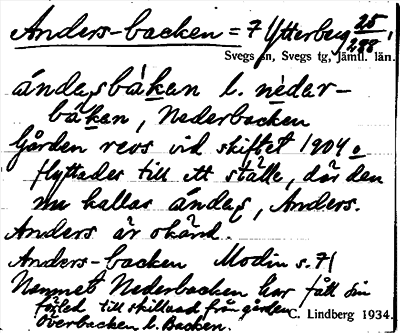 Anders-backen = 7 Ytterberg 25/288,
Svegs sn, Svegs tg, Jämtl. län.
ándasbàkan l. nèdar-
bàkan, Nederbacken
Gården revs vid skiftet 1904 o
flyttades till ett ställe, där den
nu kallas ándas, Anders.
Anders är okänd.
Anders-backen Modin s. 71
Namnet Nederbacken har fått sin
förled till skillnad från gården
Överbacken l. Backen.
C. Lindberg 1934.